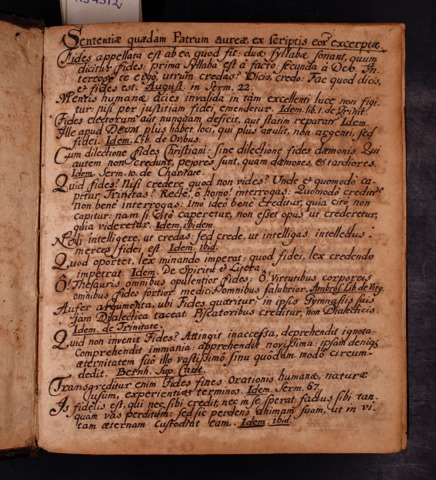 Sententiæ quædam Patrum aureæ, ex scriptis eor excerptæ
Fides appellata est ab eo, quod fit: duæ syllabæ sonant, quum
dicitur fides: prima syllaba est à facto, secunda à Deo. In-
terrogo te ergo, utrum credas? Dicis, credo: Fac quod dicis,
et fides est. August: in Serm. 22.
Mentis humanæ acies invalida in tam excellenti luce non figi-
tur: nisi per justitiam fidei, emendetur. Idem. lib. 1. de Trinit.
Fides electorum aut nunquam deficit, aut statim reparatur. Idem.
Ille apud Deum plus habet loci, qui plus attulit, non argenti, sed
fidei. Idem. Lib. de Ovibus.
Cum dilectione fides Christiani: sine dilectione fides dæmonis. Qui
autem non credunt, pejores sunt, quam dæmones, et tardiores.
Idem. Serm. de Charitate.
Quid fides? Nisi credere quod non vides? Unde et quomodo ca-
pitur Trinitas? Recte, ô homo! interrogas: Quomodo creditur?
non bene interrogas: Imò ideo bene creditur, quia citò non
capitur: nam si citò caperetur, non esset opus ut crederetur,
quia videretur. Idem. ibidem.
Noli intelligere, ut credas: sed crede, ut intelligas: intellectus
merces fidei est. Idem. ibid.
Quod oportet, lex minando imperat: quod fidei, lex credendo
impetrat. Idem. De Spiritu et Litera.
O! Thesauris omnibus opulentior fides: O! Virtutibus corporeis
omnibus fides fortior: medicis omnibus salubrior. Ambros. Lib. de Virg.
Aufer argumenta, ubi Fides quæritur: in ipsis Gymnasiis suis
jam Dialectica taceat. Piscatoribus creditur, non Dialecticis.
Idem. de Trinitate.
Quid non invenit Fides? Attingit inaccessa, deprehendit ignota:
Comprehendit immania: apprehendit novissima: ipsam deniq
æternitatem suo illo vastissimo sinu quodam modo circum-
dedit. Bernh. Sup. Cant.
Transgreditur enim Fides fines orationis humanæ, naturæ
usum, experientiæ terminos. Idem. Serm. 67.
Is fidelis est, qui nec sibi credit, nec in se sperat: factus sibi tan-
quam vas perditum: sed sic perdens animam suam, ut in vi-
tam æternam custodiat eam. Idem. ibid.